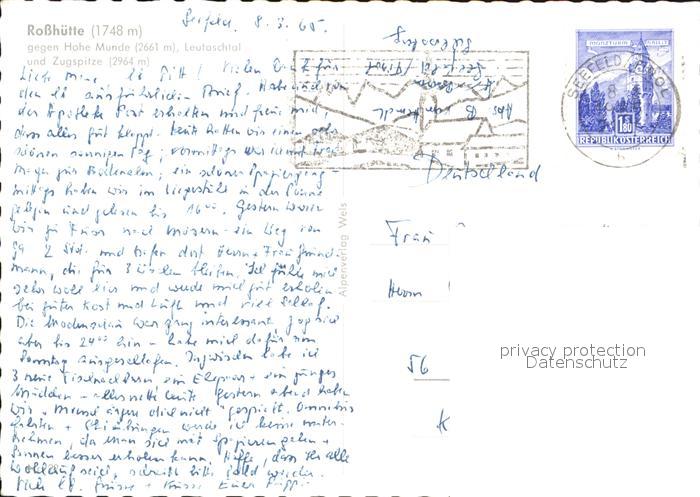 Roßhütte (1748 m)
gegen Hohe Munde (2661 m), Leutaschtal
und Zugspitze (2964 m)
Seefeld, 8.3.65.
Vielen Dank für
den lb. ausführlichen Brief.
der Apotheke Post erhalten und freue mich
dass alles gut klappt. Heute hatten wir einen sehr
schönen sonnigen Tag; vormittags
ein schöner Spaziergang
mittags haben wir im Liegestuhl in der Sonne
gelegen und gelesen bis 16 00. Gestern waren
wir zu Fuss nach Mösern - ein Weg von
ca 2 Std. und trafen dort Herrn + Frau
mann, die für 3 Wochen bleiben. Ich fühle mich
sehr wohl hier und werde mich gut erholen
bei guter Kost und Luft und viel Schlaf.
Die Modenschau war ganz interessant, zog sich
aber bis 24 00 hin - habe mich dafür am
Sonntag ausgeschlafen. Inzwischen habe ich
3 neue Tischnachbarn ein Ehepaar + ein junges
Mädchen - alles nette Leute. Gestern abend haben
wir "Mensch ärgere dich nicht" gespielt. Omnibus
fahrten + werde ich keine unter-
nehmen, da man sich mit Spazierengehen +
Sonnen besser erholen kann. Hoffe, dass Ihr alle
wohlauf seid, schreibt bitte bald wieder.
Euch lb. Grüsse + Küsse Eure
Alpenverlag Wels
Abs.
Seefeld / Tirol
MÜNZTURM HALL I.T.
1.80
REPUBLIK ÖSTERREICH
SEEFELD, TIROL
8.
b
Deutschland
Frau
Herrn
56
K
privacy protection
Datenschutz